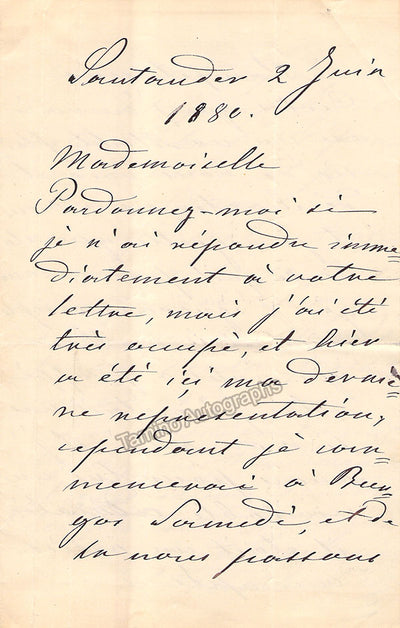 Santander 2 Juin
1880.
Mademoiselle
Pardonnez-moi si
je n'ai répondu imme=
diatement à votre
lettre, mais j'ai été
très occupé, et hier
a été ici ma derniè=
re representation,
Tamino Autographs
cependant je com=
mencerai à Bur=
gos Samedi, et de
la nous passons